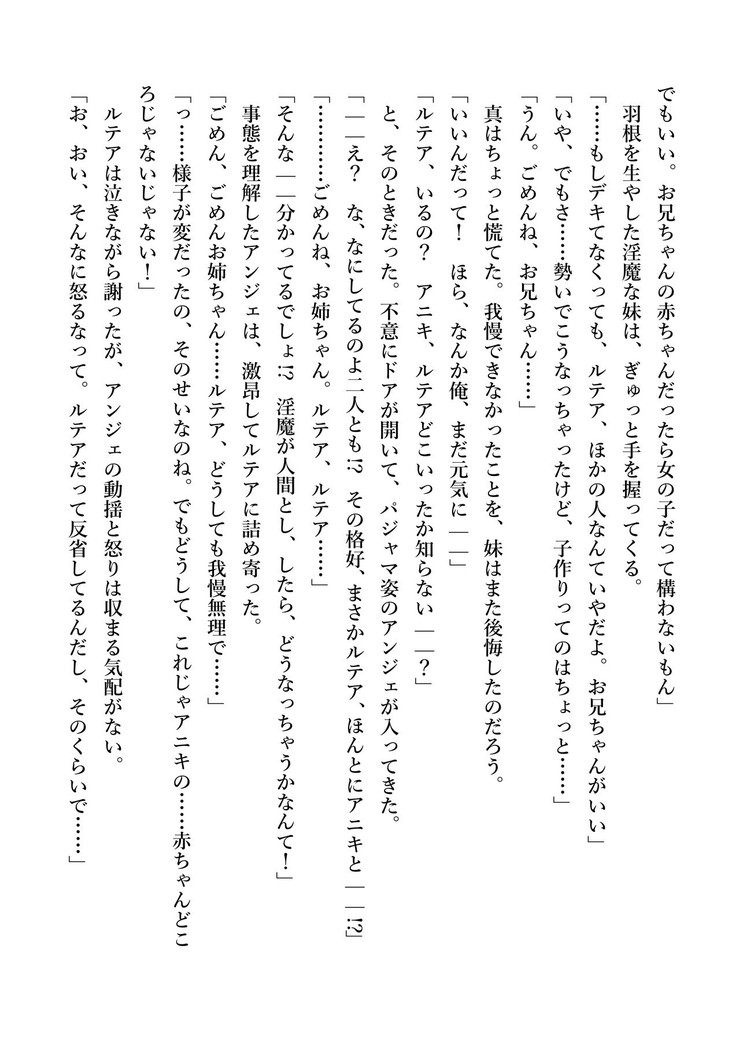 でもいい。お兄ちゃんの赤ちゃんだったら女の子だって構わないもん」
　羽根を生やした淫魔な妹は、ぎゅっと手を握ってくる。
「……もしデキてなくっても、ルテア、ほかの人なんていやだよ。お兄ちゃんがいい」
「いや、でもさ……勢いでこうなっちゃったけど、子作りってのはちょっと……」
「うん。ごめんね、お兄ちゃん……」
　真はちょっと慌てた。我慢できなかったことを、妹はまた後悔したのだろう。
「いいんだって！　ほら、なんか俺、まだ元気に――」
「ルテア、いるの？　アニキ、ルテアどこいったか知らない――？」
　と、そのときだった。不意にドアが開いて、パジャマ姿のアンジェが入ってきた。
「――え？　な、なにしてるのよ二人とも!?　その格好、まさかルテア、ほんとにアニキと――!?」
「…………ごめんね、お姉ちゃん。ルテア、ルテア……」
「そんな――分かってるでしょ!?　淫魔が人間とし、したら、どうなっちゃうかなんて！」
　事態を理解したアンジェは、激昂してルテアに詰め寄った。
「ごめん、ごめんお姉ちゃん……ルテア、どうしても我慢無理で……」
「っ……様子が変だったの、そのせいなのね。でもどうして、これじゃアニキの……赤ちゃんどこ
ろじゃないじゃない！」
　ルテアは泣きながら謝ったが、アンジェの動揺と怒りは収まる気配がない。
「お、おい、そんなに怒るなって。ルテアだって反省してるんだし、そのくらいで……」